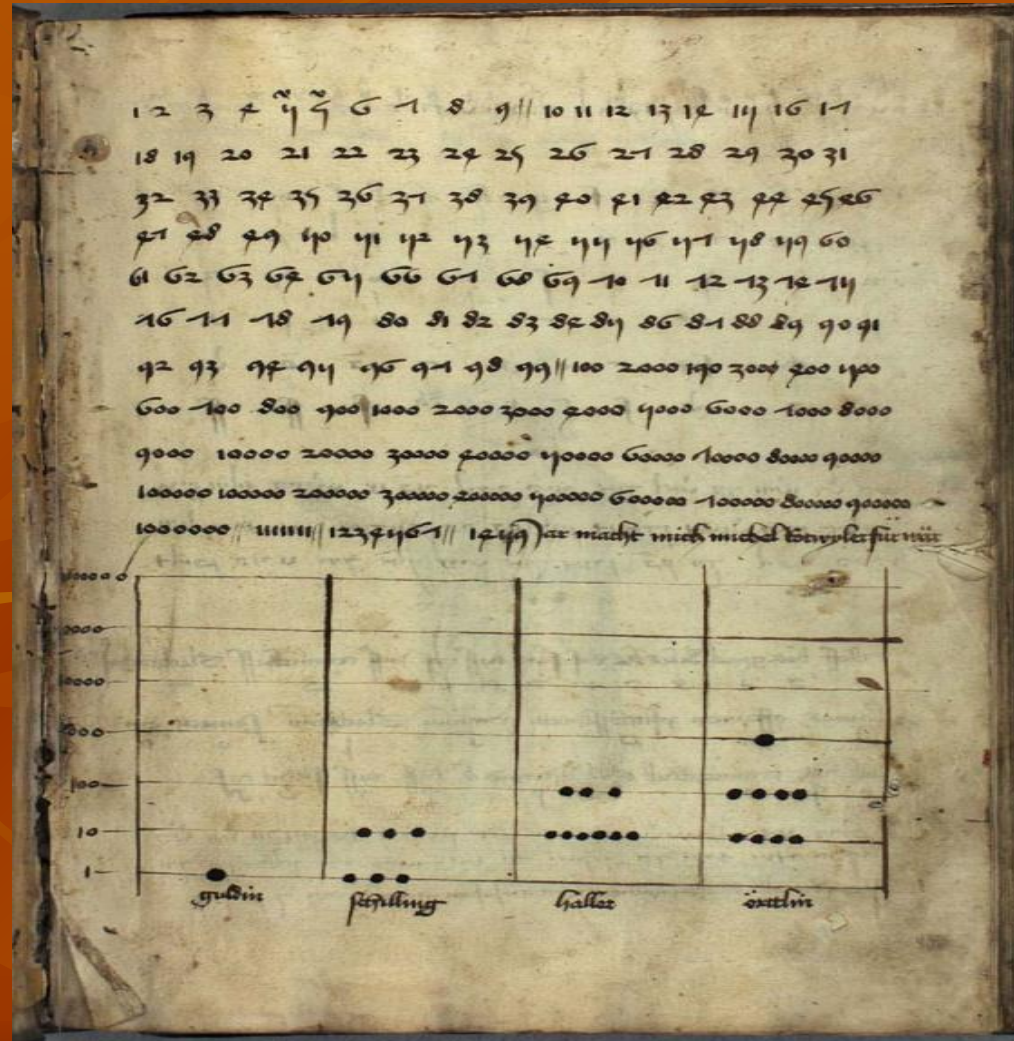 1 2 3 4 5 5 6 7 8 9 // 10 11 12 13 14 15 16 17
18 19 20 21 22 23 24 25 26 27 28 29 30 31
32 33 34 35 36 37 38 39 40 41 42 43 44 45 46
47 48 49 50 51 52 53 54 55 56 57 58 59 60
61 62 63 64 65 66 67 68 69 70 71 72 73 74 75
76 77 78 79 80 81 82 83 84 85 86 87 88 89 90 91
92 93 94 95 96 97 98 99 // 100 2000 190 3000 400 500
600 700 800 900 1000 2000 3000 4000 5000 6000 7000 8000
9000 10000 20000 30000 40000 50000 60000 70000 80000 90000
100000 100000 200000 300000 400000 500000 600000 700000 80000 900000
1000000 // // 1234567 // 1459 Jar macht mich michel für
100
10
1
guldin schilling haller örttlin